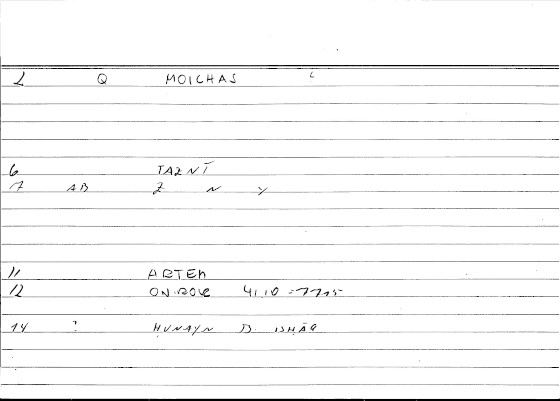 L Q MOICHAS L
6 TAZNĪ
7 AB Z N Y
11 ARTEM
12 ON.ROVE 41.10 = 7715
14 ? ḤUNAYN B. ISḤĀQ